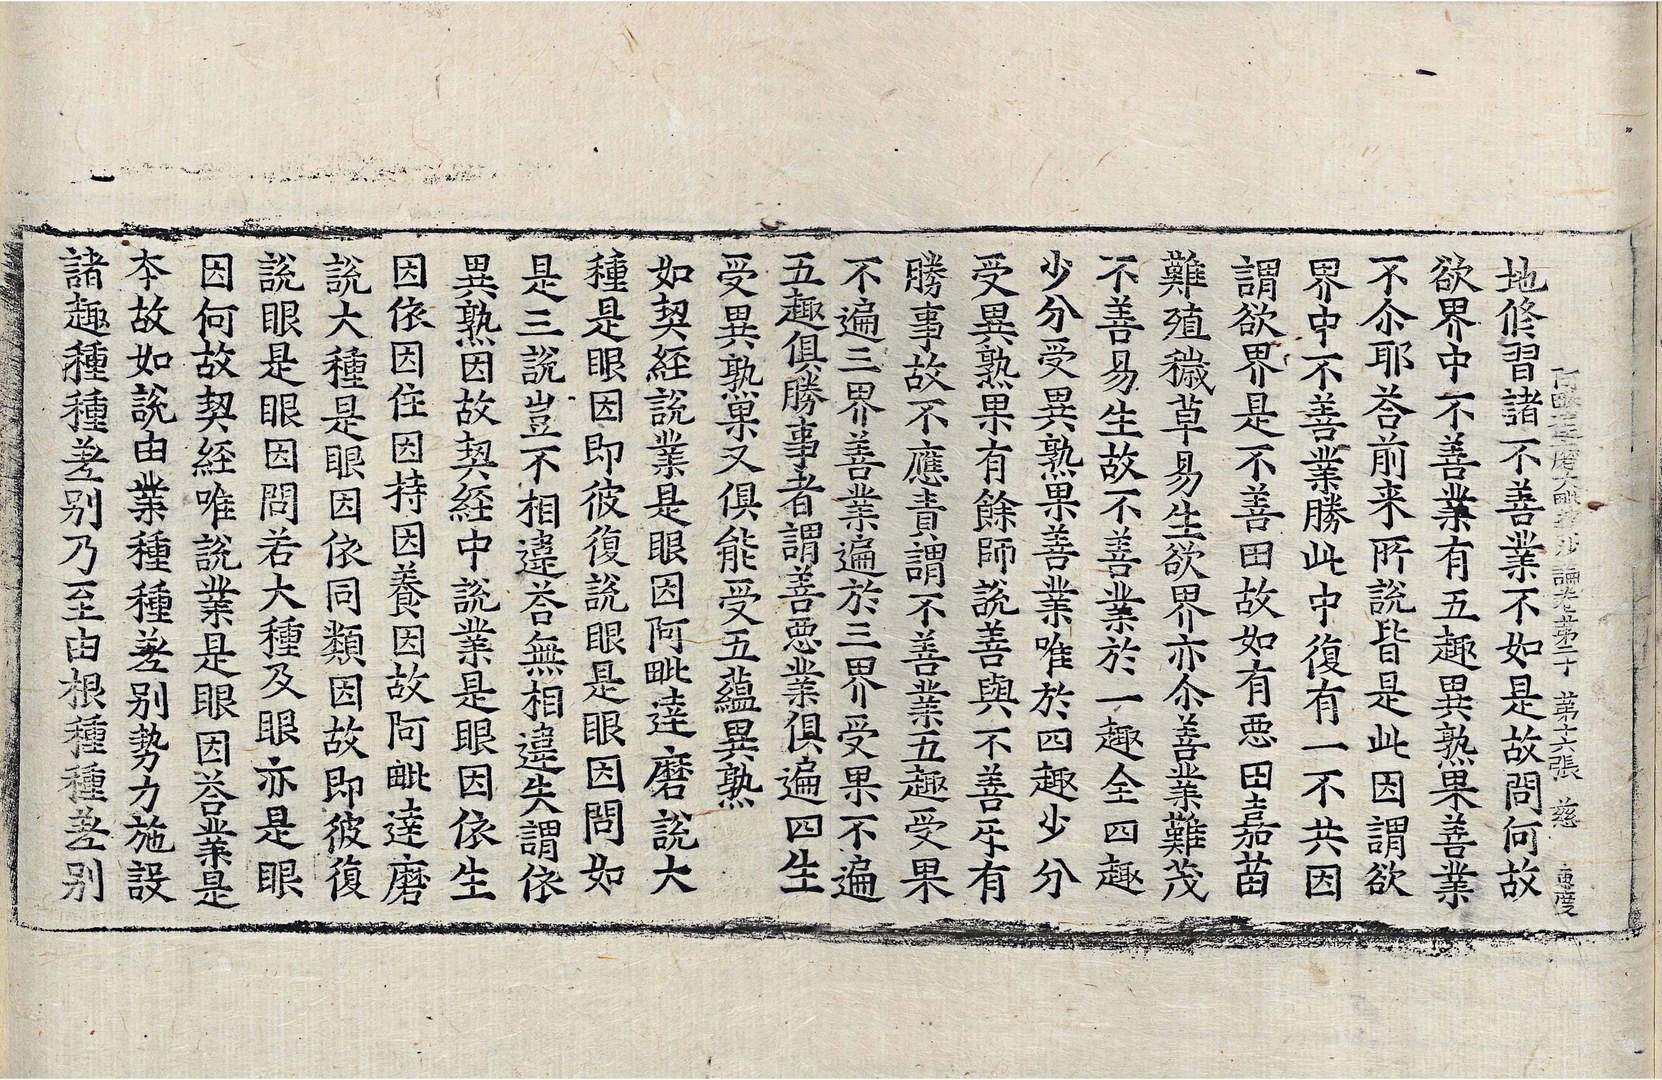 阿毗達磨大毗婆沙論卷第二十 第十六張 慈
地修習諸不善業不如是故問何故
欲界中不善業有五趣異熟果善業
不尒耶荅前来所說皆是此因謂欲
界中不善業勝此中復有一不共因
謂欲界是不善田故如有惡田嘉苗
難殖穢草易生欲界亦尒善業難茂
不善易生故不善業於一趣全四趣
少分受異熟果善業唯於四趣少分
受異熟果有餘師說善與不善乐有
勝事故不應責謂不善業五趣受果
不遍三界善業遍於三界受果不遍
五趣俱勝事者謂善惡業俱遍四生
受異熟果又俱能受五蘊異熟
如契經說業是眼因阿毗達磨說大
種是眼因即彼復說眼是眼因問如
是三說豈不相違荅無相違失謂依
異熟因故契經中說業是眼因依生
因依因住因持因養因故阿毗達磨
說大種是眼因依同類因故即彼復
說眼是眼因問若大種及眼亦是眼
因何故契經唯說業是眼因荅業是
夲故如說由業種種差别勢力施設
諸趣種種差别乃至由根種種差别